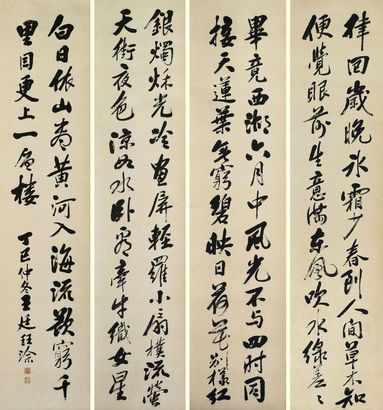 律回歲晚冰霜少春到人間草木知
便覺眼前生意滿東風吹水綠差〻
畢竟西湖六月中風光不與四時同
接天蓮葉無窮碧映日荷花別樣紅
銀燭秋光冷畫屏輕羅小扇撲流螢
天街夜色涼如水卧看牽牛織女星
白日依山盡黃河入海流欲窮千
里目更上一層樓 丁巳仲冬王廷